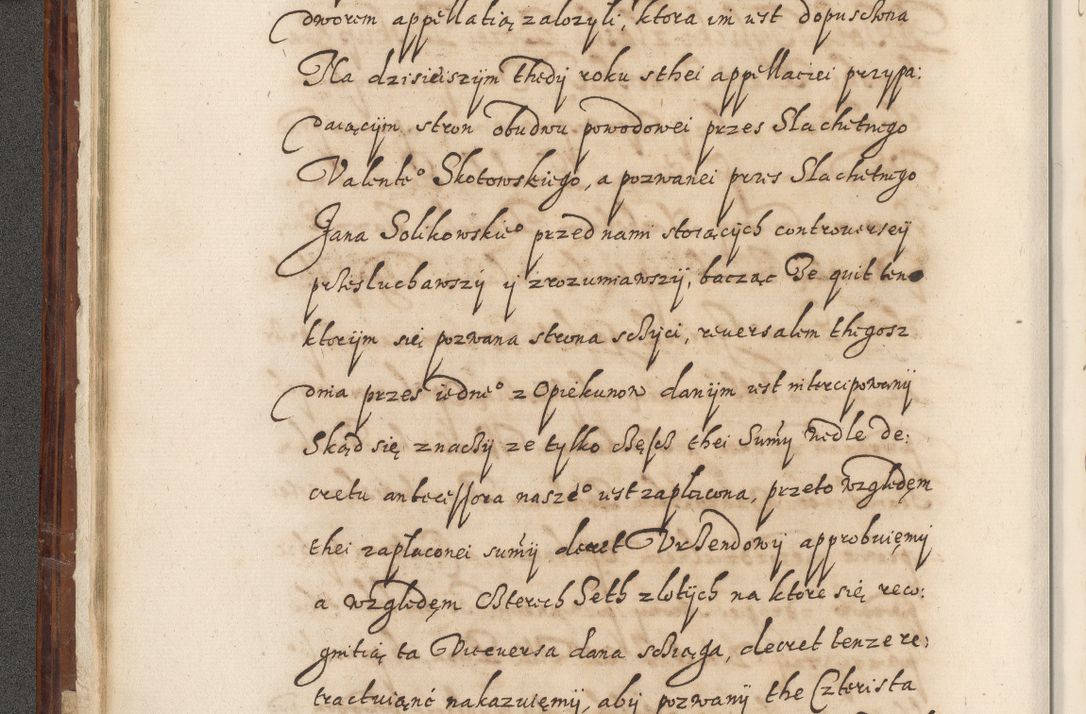 dworem appellatią zalozyli, ktora im iest dopusczona
Na dzisieiszym thedy roku sthei appellaciei przypa:
daiącym stron obudwu powodowei przes Slachetnego
Valente° Skotowskiego, a pozwanei przes Slachetnego
Jana Solikowskie° przed nami stoiących controuersÿ
przesluchawszÿ ÿ zrozumiawszÿ, bacząc Ze quit ten
ktorÿm się pozwana strona sczÿci, reuersalem thegosz
dnia przes iedne° z Opiekunow danÿm iest intercipowanÿ
Skąd się znaczÿ ze tylko częscz thei Sumÿ wedle de:
cretu antecessora nasze° iest zaplacona, przeto względem
thei zaplaconei sumÿ decret Vrzendowÿ approbuięmÿ
a względem czterech Seth zlotÿch na ktore się reco:
gnitią ta Viceuersa dana sciąga, decret tenze re:
tractuiąnc nakazuięmÿ, abÿ pozwanÿ the Czterista